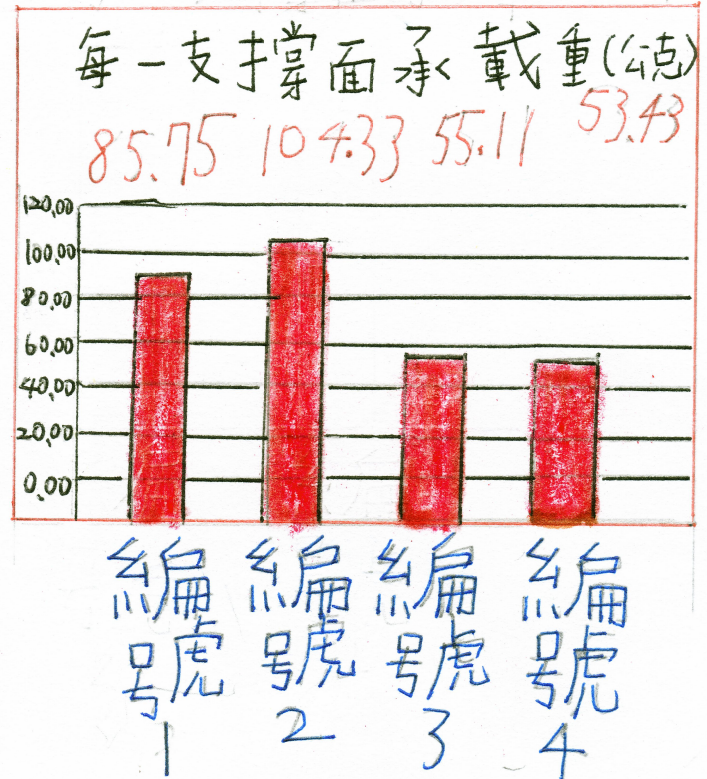 每一支撐面承載重(公克)
85.75 104.33 55.11 53.43
120.00
100.00
80.00
60.00
40.00
20.00
0.00
編號1 編號2 編號3 編號4